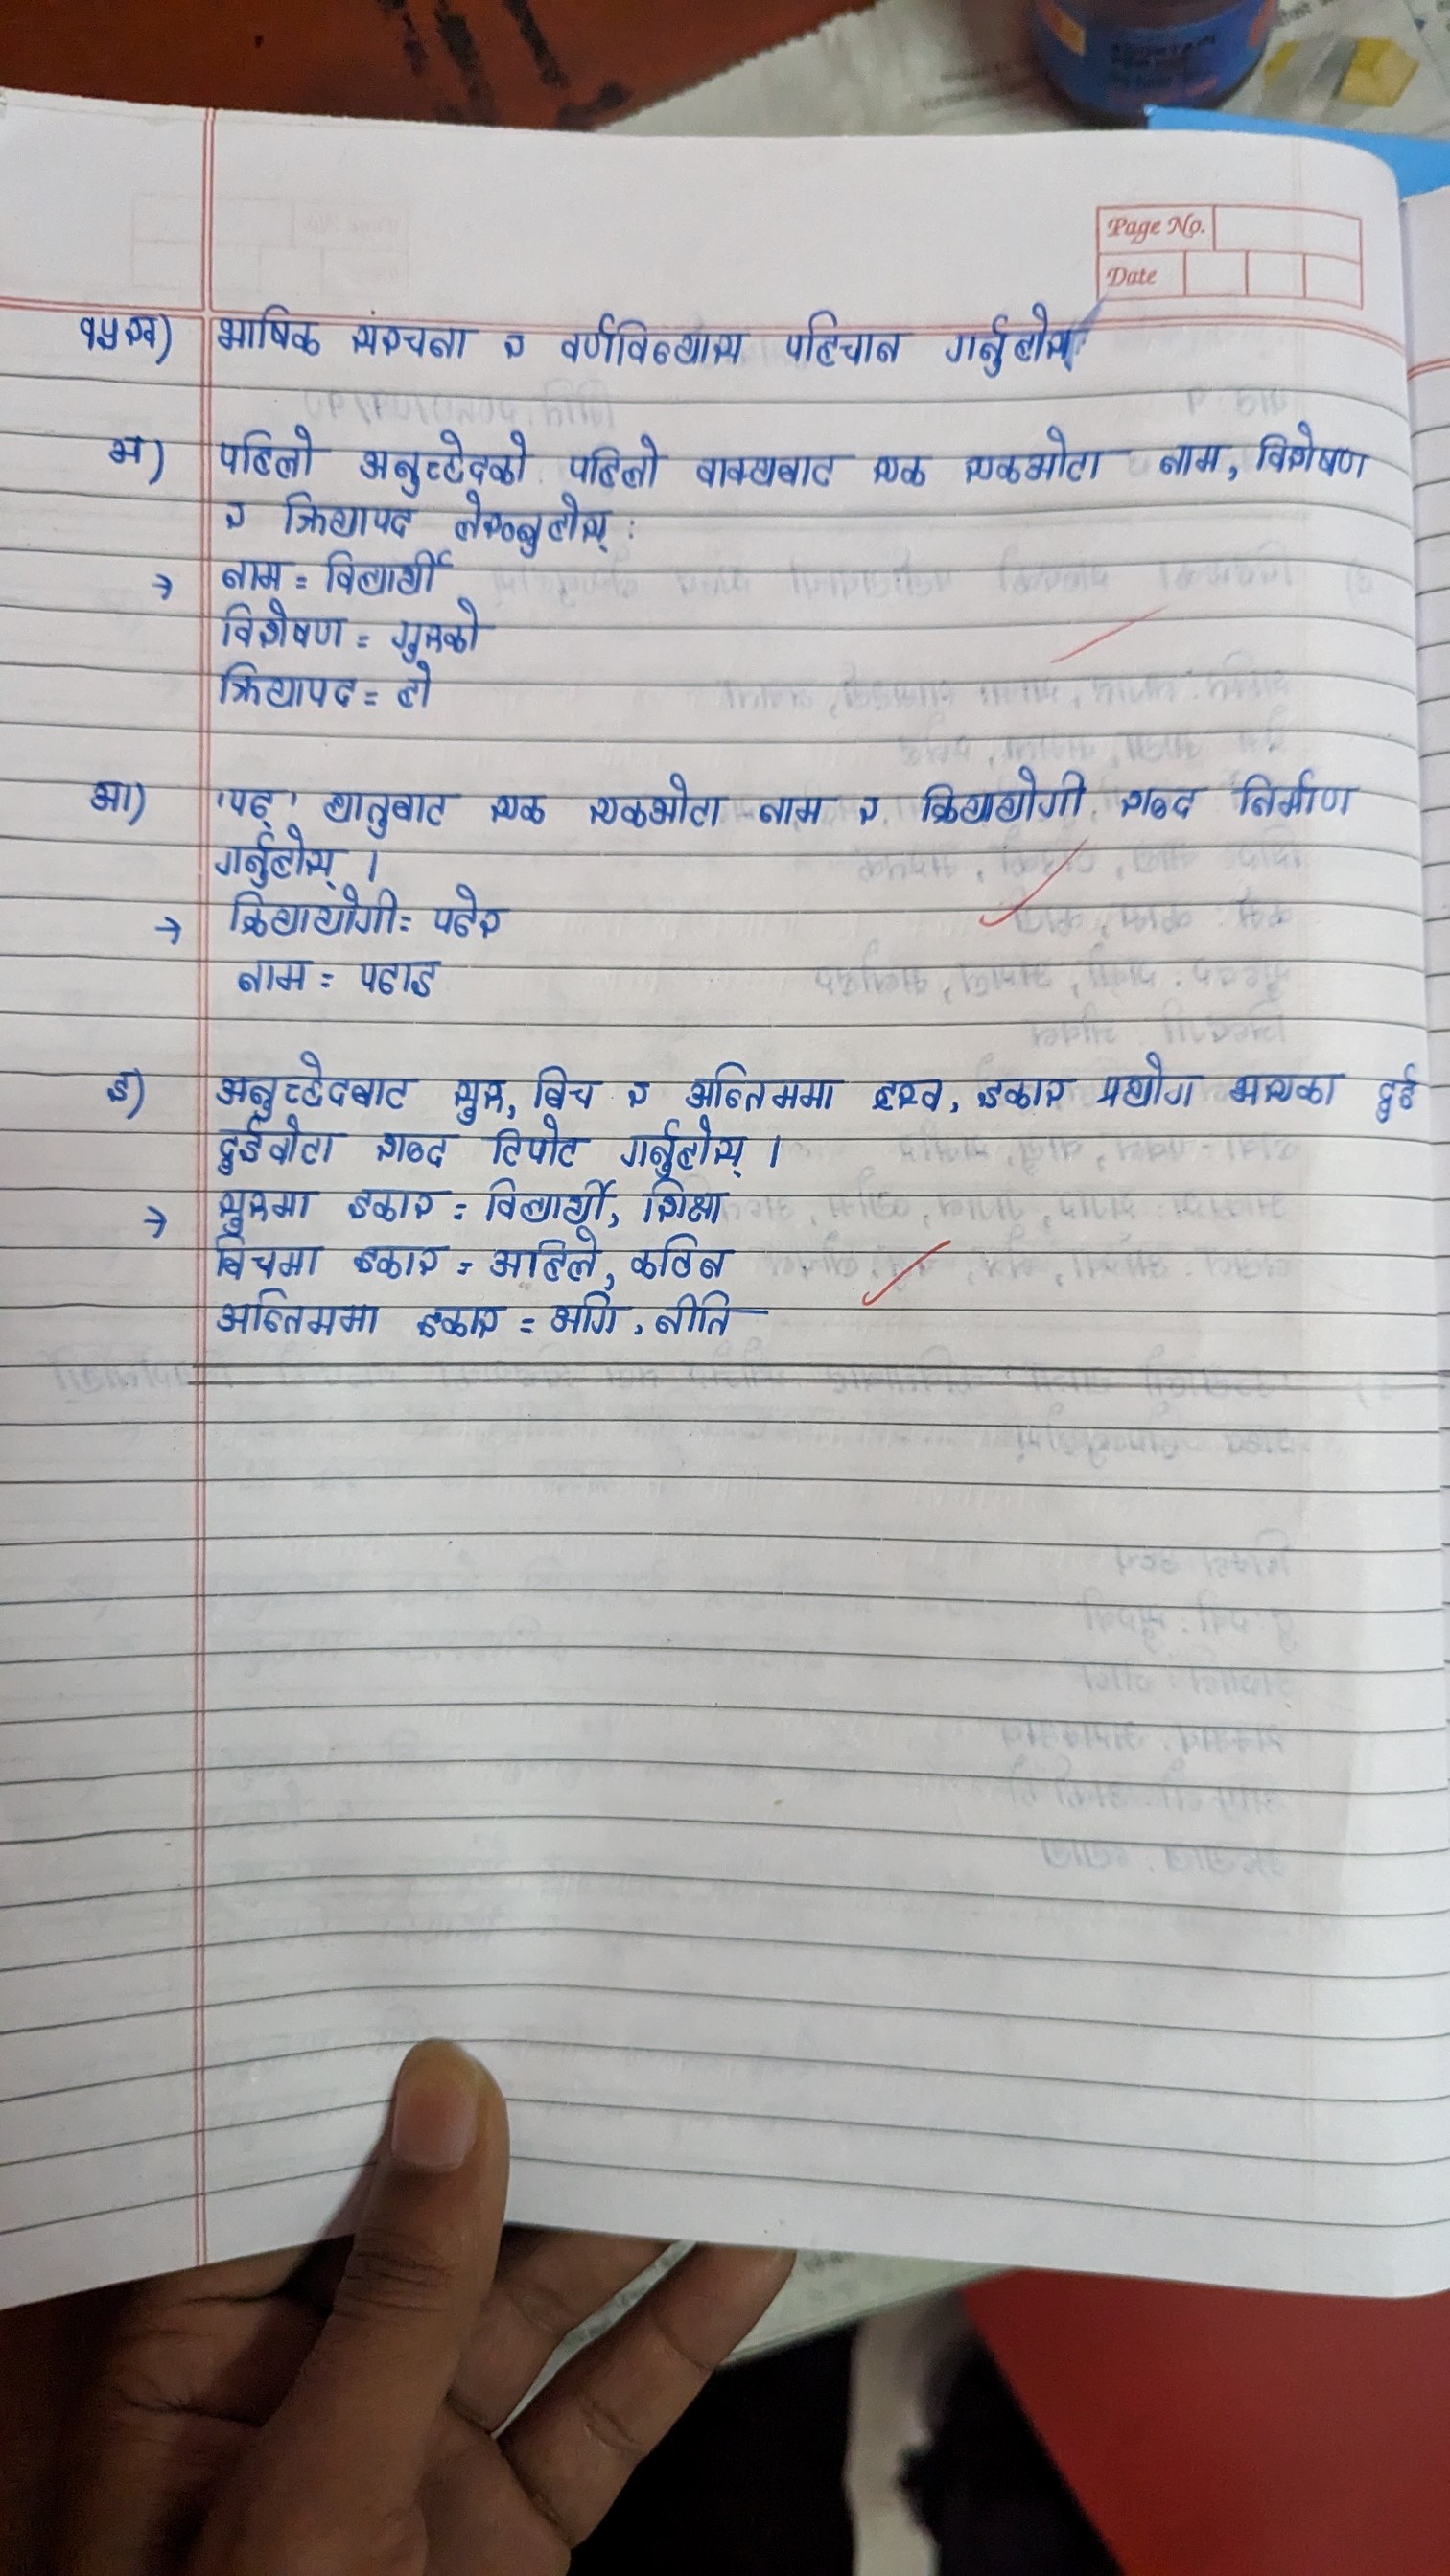 Page No.
Date
१५ ख) भाषिक संरचना र वर्णविन्यास पहिचान गर्नुहोस्
अ) पहिलो अनुच्छेदको पहिलो वाक्यबाट एक एकओटा नाम, विशेषण
र क्रियापद लेख्नुहोस् :
→ नाम = विद्यार्थी
विशेषण = गुरुको
क्रियापद = हो
आ) 'पढ्' धातुबाट एक एकओटा नाम र क्रियायोगी शब्द निर्माण
गर्नुहोस् ।
→ क्रियायोगी = पढेर
नाम = पढाइ
इ) अनुच्छेदबाट सुरु, बिच र अन्तिममा ह्रस्व, इकार प्रयोग भएका दुई
दुईवोटा शब्द टिपोट गर्नुहोस् ।
→ सुरुमा इकार = विद्यार्थी, शिक्षा
बिचमा इकार = अहिले, कठिन
अन्तिममा इकार = अगि, नीति